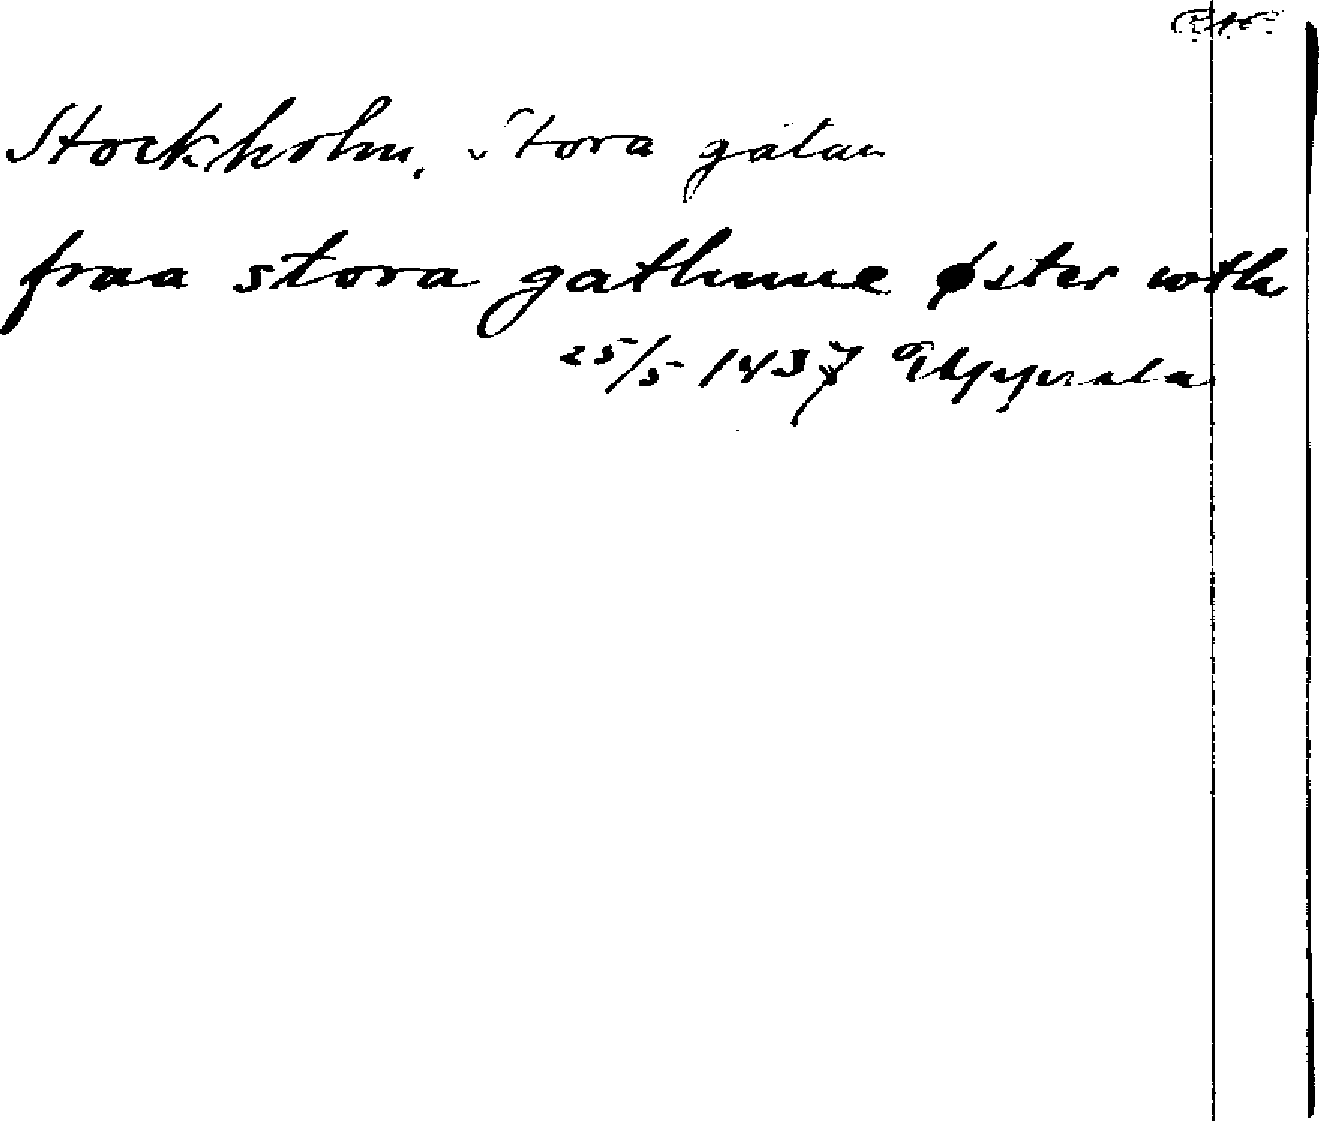 Stockholm, Stora gatan
fraa stora gathunne øster wth
25/5 1437 Uppsala